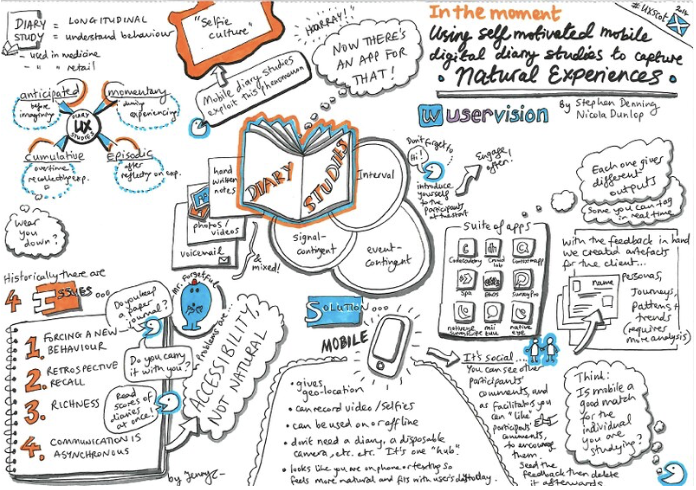 DIARY STUDY
= LONGITUDINAL
= understand behaviour
- used in medicine
- " " retail
"Selfie culture"
Mobile diary studies exploit this phenomenon
HOORAY!
NOW THERE'S
AN APP FOR
THAT!
In the moment
Using self motivated mobile
digital diary studies to capture
• Natural Experiences •
#UXScot
uservision
By Stephen Denning
Nicola Dunlop
anticipated
before
imagining
momentary
during
experiencing
DIARY
UX
STUDIES
Cumulative
overtime
Episodic
after
reflect on exp.
Wear
you
down?
DIARY STUDIES
hand
written
notes
photos/
videos
voicemail
& mixed!
Interval
signal-
contingent
event-
contingent
Don't forget to
Hi!
introduce
yourself
to the
participants
at the start
Engage
often!
Suite of apps
Each one gives
different
outputs
Some you can tag
in real time
With the feedback in hand
we created artefacts
for the client...
name
personas,
Journeys,
patterns +
trends
(requires
more analysis)
Historically there are
4 ISSUES...
1. FORCING A NEW
BEHAVIOUR
2. RETROSPECTIVE
RECALL
3. RICHNESS
4. COMMUNICATION IS
ASYNCHRONOUS
Do you keep
a paper
journal?
Do you carry
it with you?
Read
scores of
diaries
at once!
Mr. Forgetful
Problems are...
ACCESSIBILITY,
NOT NATURAL
by Jenny
SOLUTION...
MOBILE
• gives
geo-location
• can record video/selfies
• can be used on or offline
• don't need a diary, a disposable
camera, etc. etc. It's one "hub."
• looks like you are on phone or texting so
feels more natural and fits with user's day today.
It's social...
You can see other
participants'
comments, and
as facilitators you
can "like"
participants'
comments,
to encourage
them.
Seed the
feedback then delete
it afterwards
Think:
Is mobile a
good match
for the
individual
you are
studying?